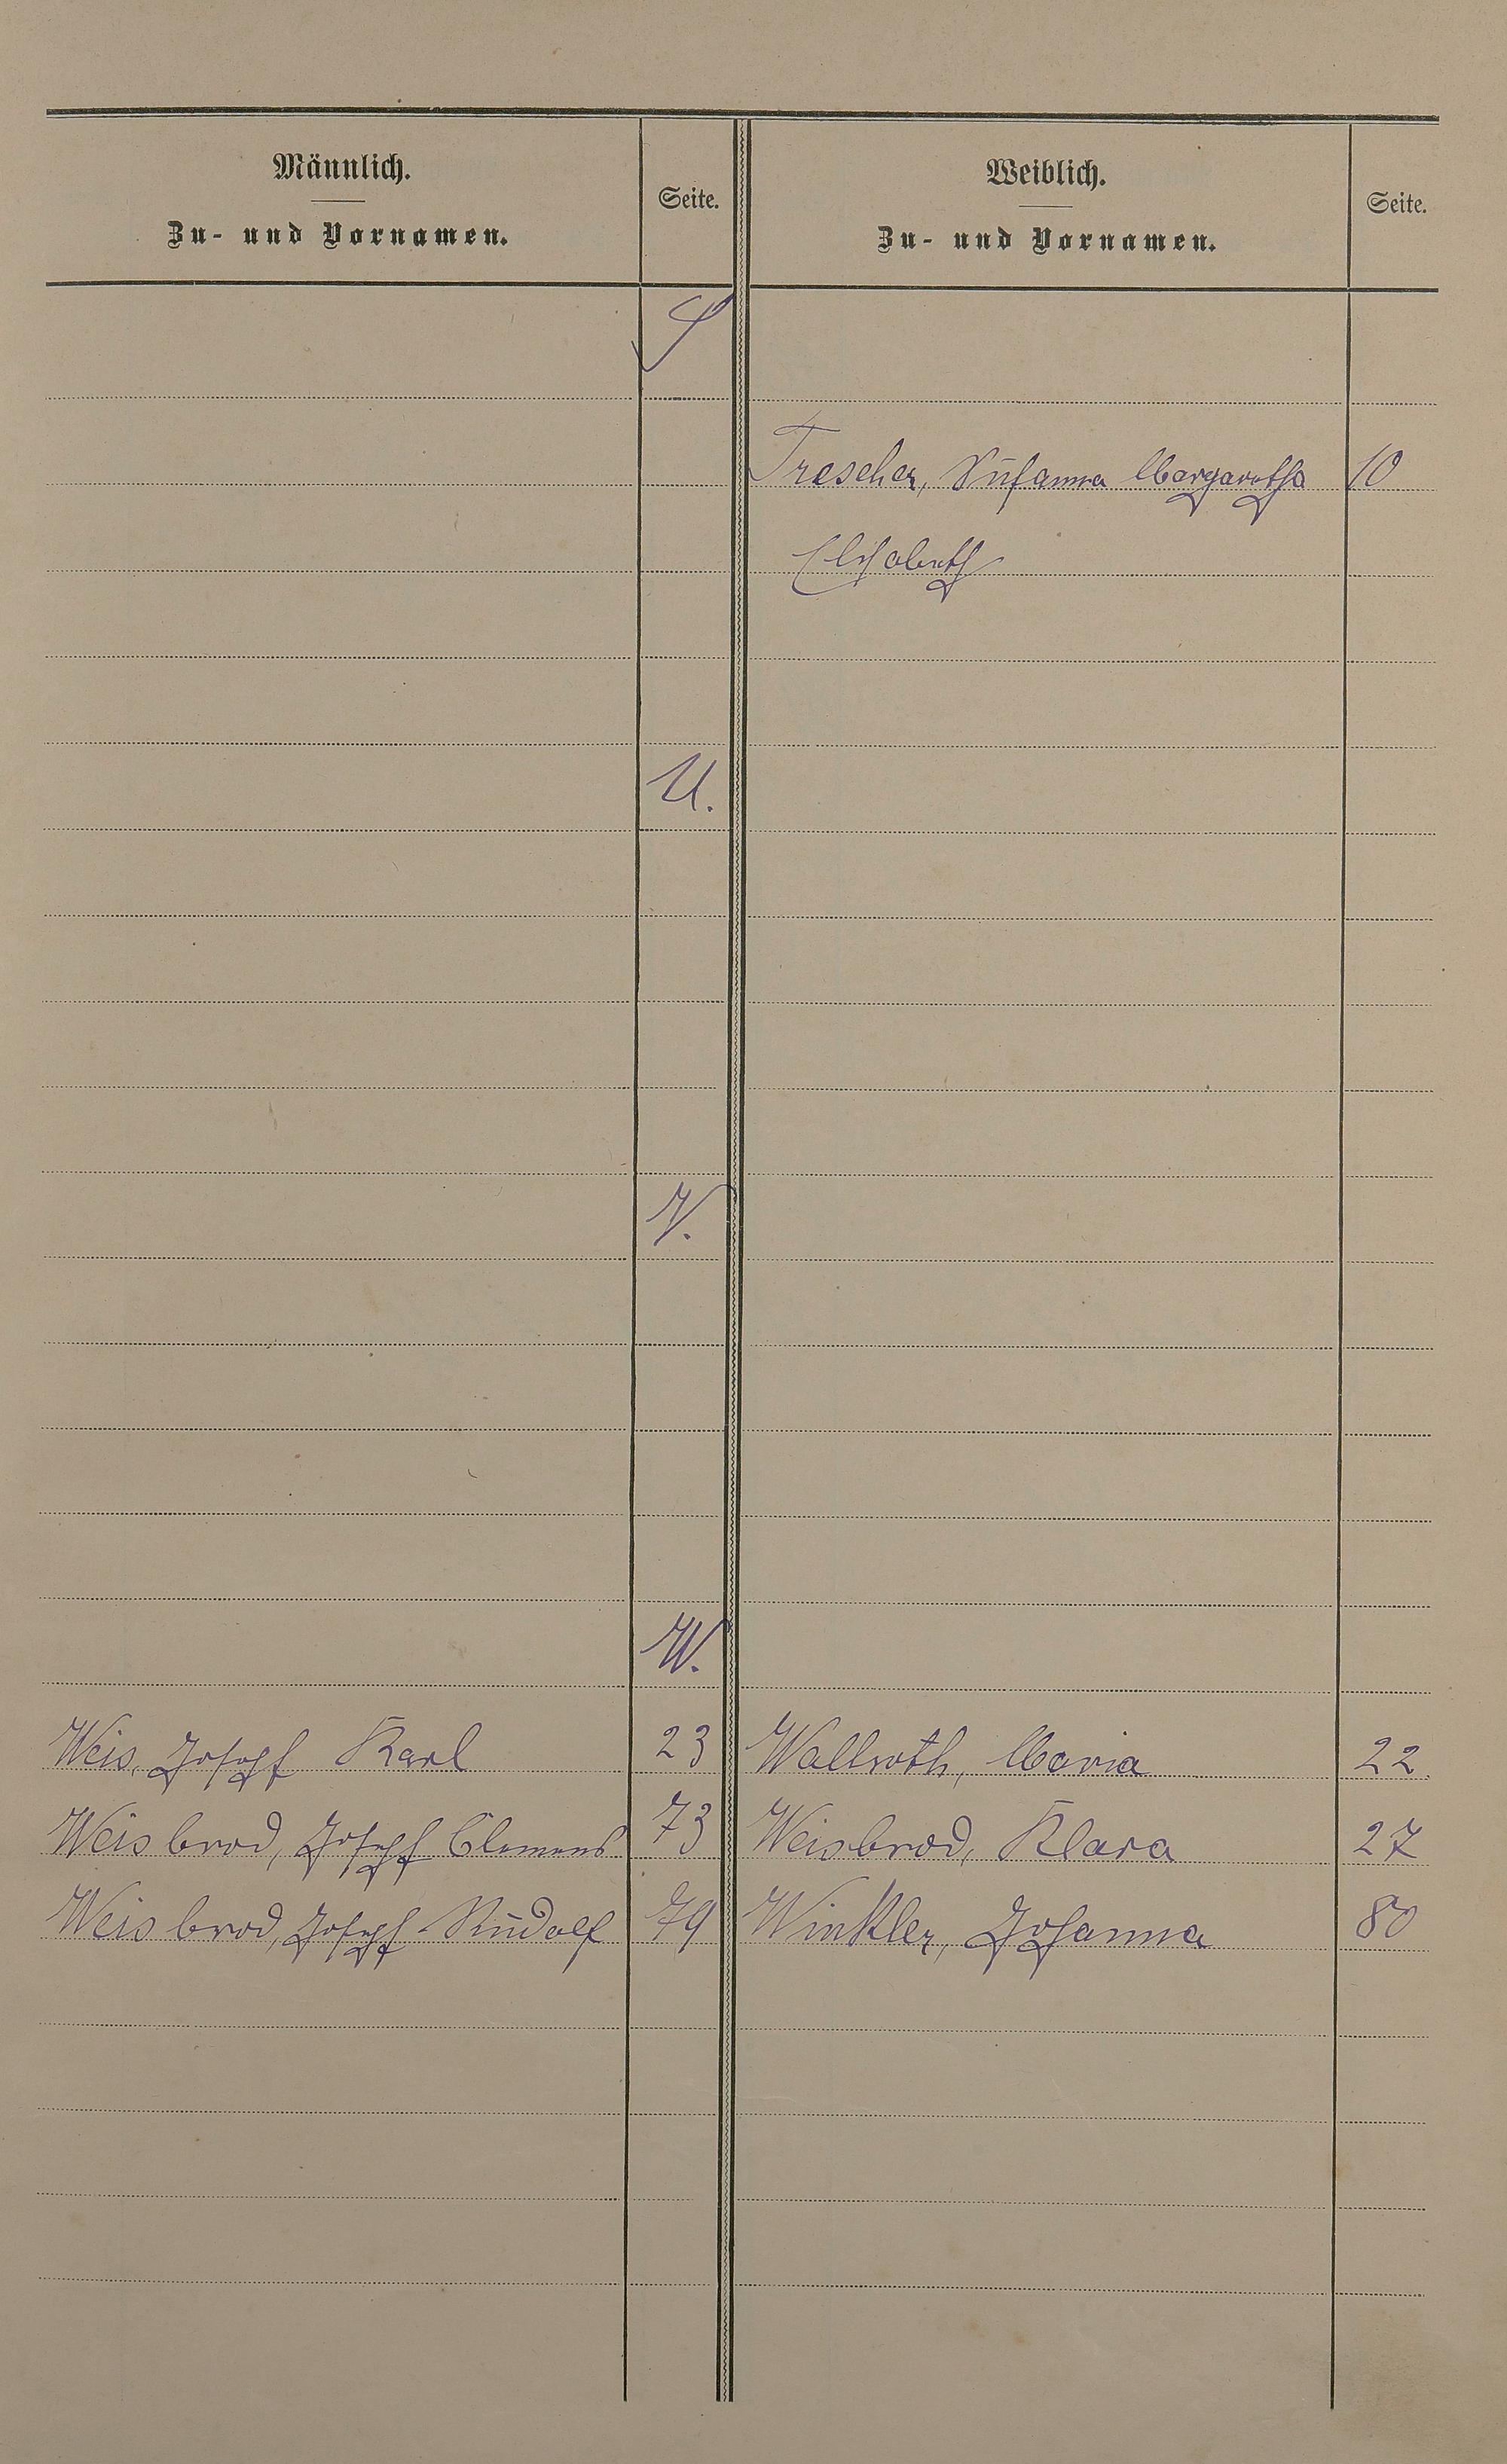 Männlich.
Zu- und Vornamen.
Seite.
Weiblich.
Zu- und Vornamen.
Seite.
Trescher, Susanna Margaretha 10
Elisabeth
U.
V.
W.
Weis, Joseph Karl 23 Wallroth, Maria 22.
Weisbrod, Joseph Clemens 73 Weisbrod, Klara 27
Weisbrod, Joseph Rudolf 79 Winkler, Johanna 80